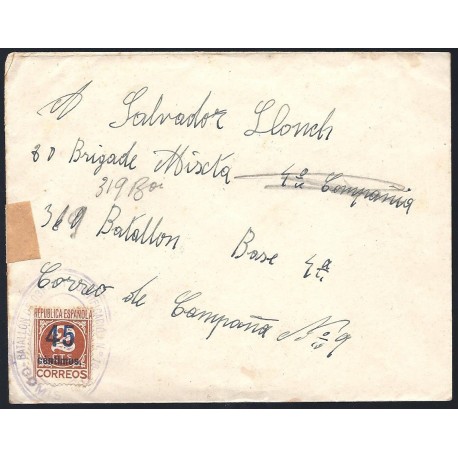 A Salvador Llonch
80 Brigade Mixcta 4ª Compañia
319 Bon
319 Batallon
Base 4ª
Correo de Campaña Nº 9
REPUBLICA ESPAÑOLA
45
centimos
CORREOS
BATALLON